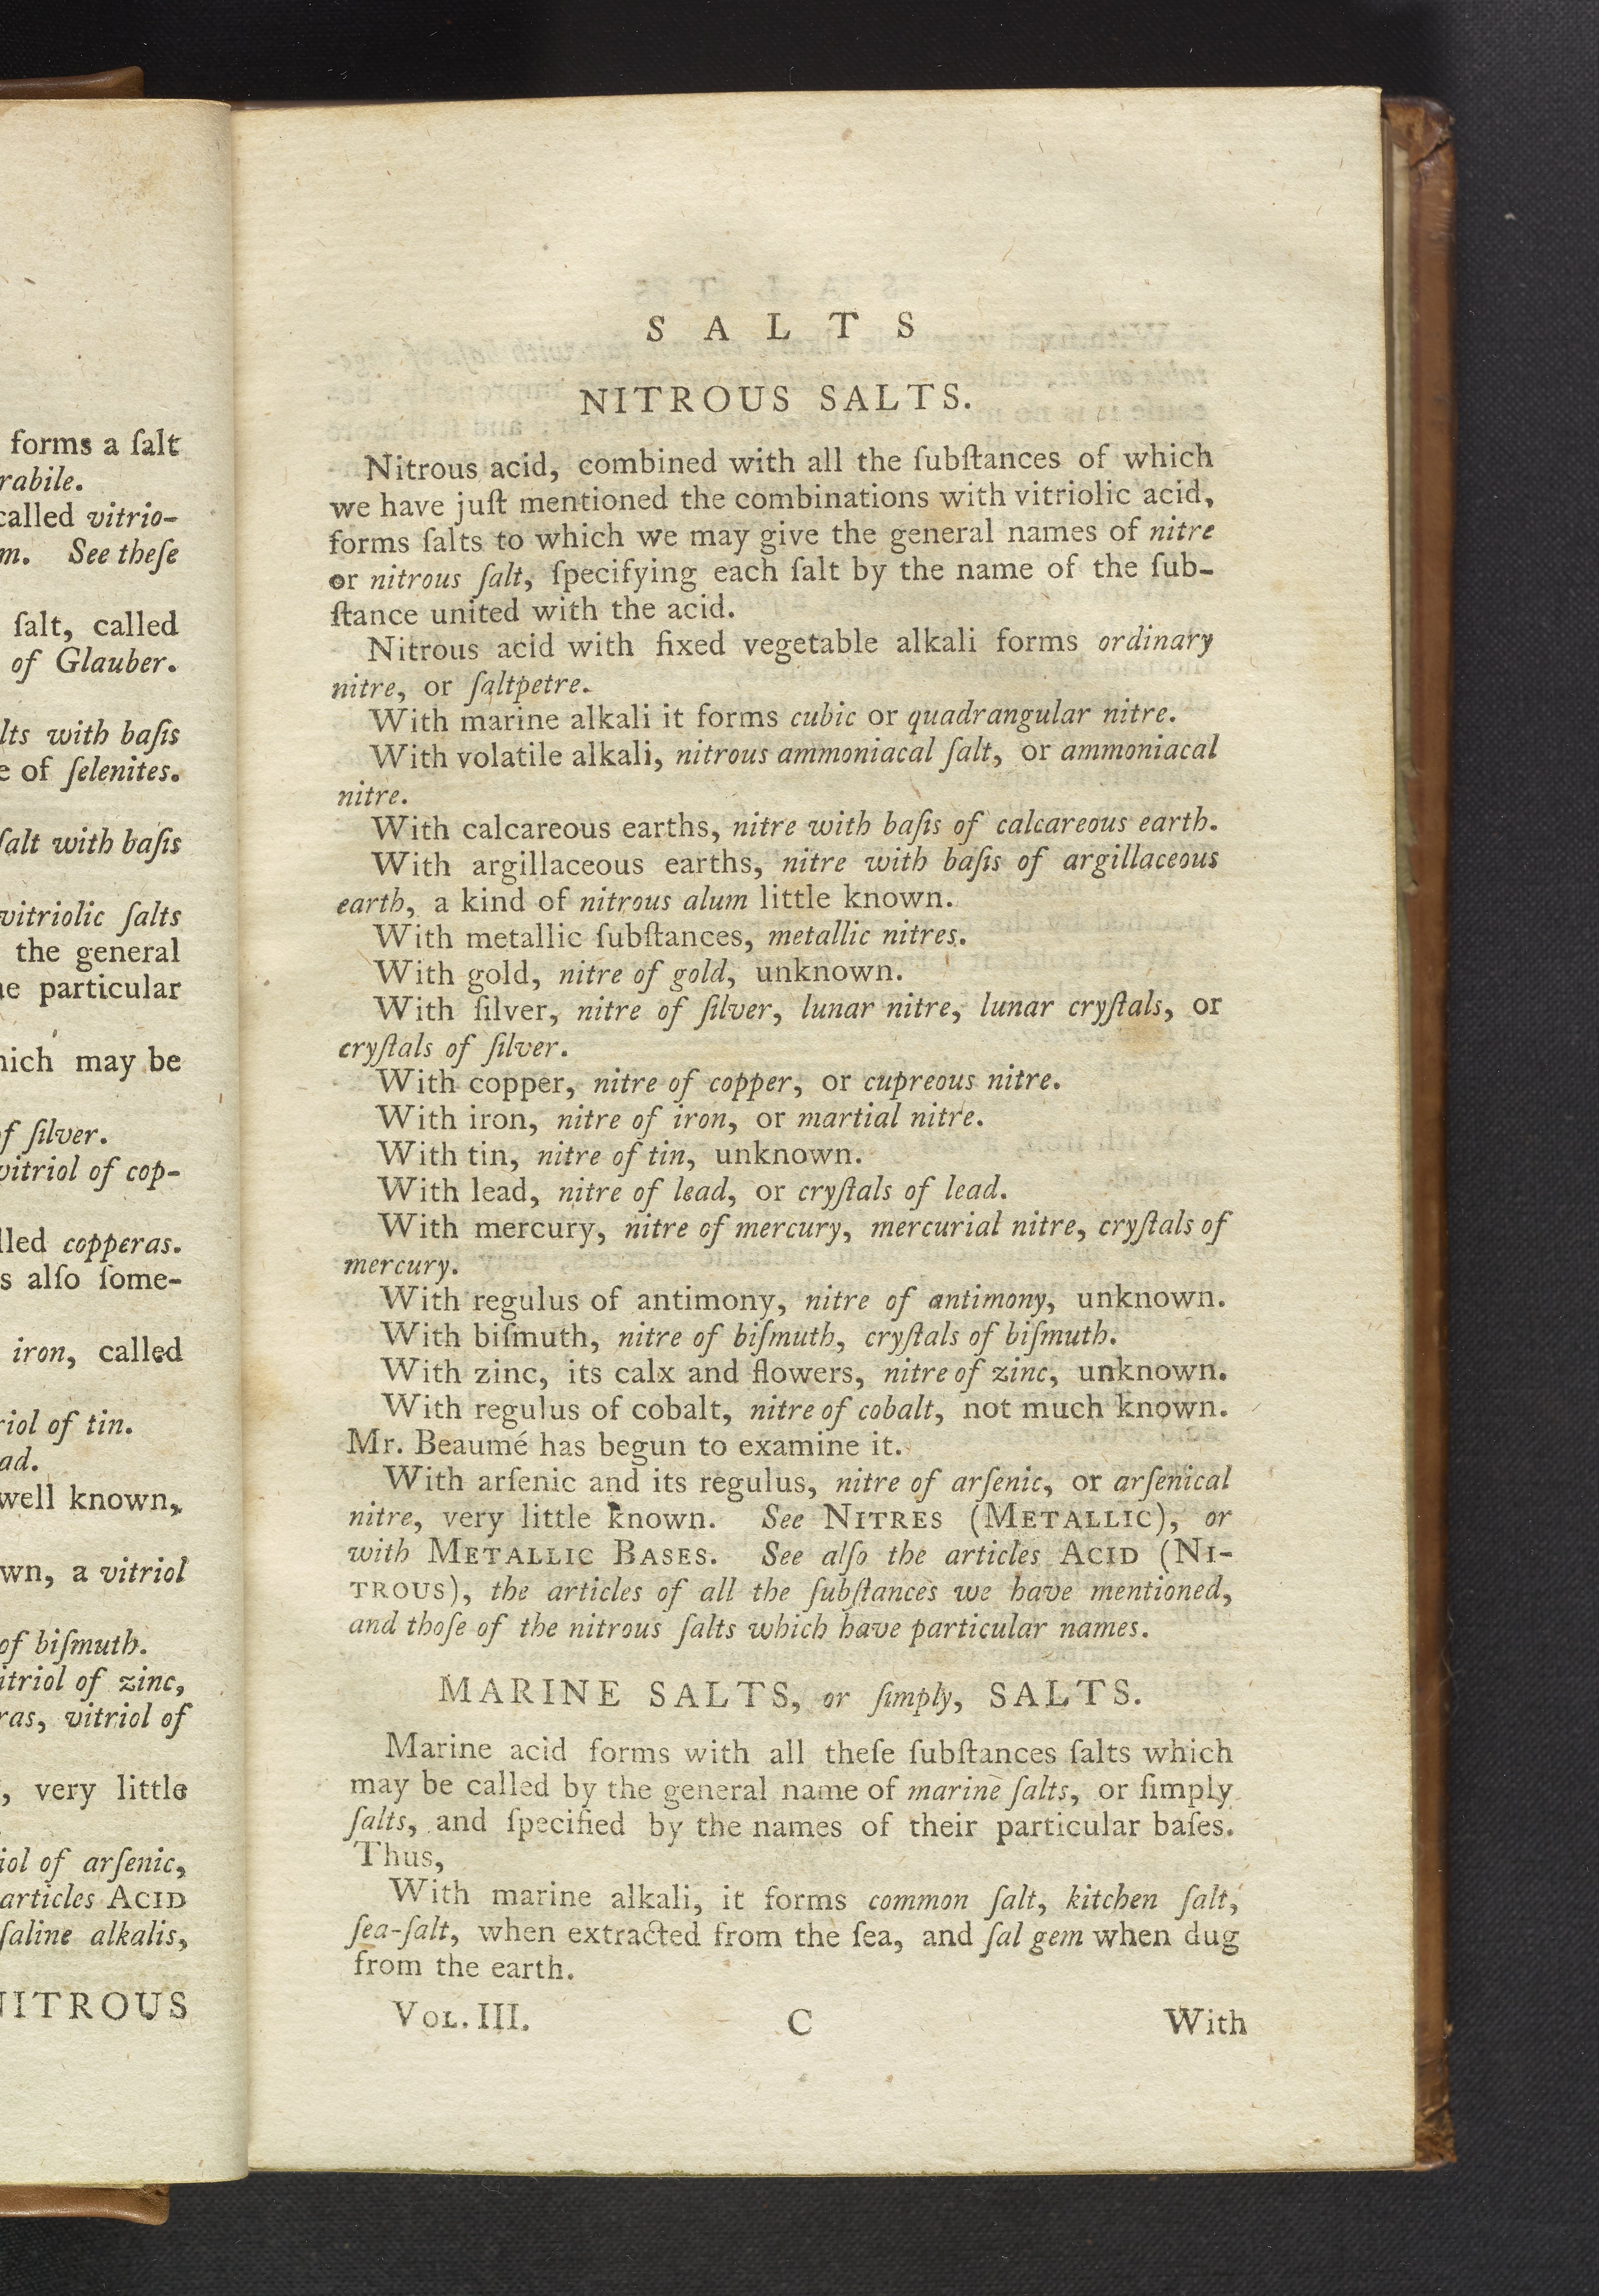 forms a ſalt
rabile.
called vitrio-
m. See theſe
ſalt, called
of Glauber.
lts with baſis
e of ſelenites.
ſalt with baſis
vitriolic ſalts
the general
particular
may be
f ſilver.
vitriol of cop-
lled copperas.
s alſo ſome-
iron, called
riol of tin.
ad.
well known,
wn, a vitriol
of biſmuth.
itriol of zinc,
ras, vitriol of
, very little
iol of arſenic,
articles ACID
ſaline alkalis,
NITROUS
S A L T S
NITROUS SALTS.
Nitrous acid, combined with all the ſubſtances of which
we have juſt mentioned the combinations with vitriolic acid,
forms ſalts to which we may give the general names of nitre
or nitrous ſalt, ſpecifying each ſalt by the name of the ſub-
ſtance united with the acid.
Nitrous acid with fixed vegetable alkali forms ordinary
nitre, or ſaltpetre.
With marine alkali it forms cubic or quadrangular nitre.
With volatile alkali, nitrous ammoniacal ſalt, or ammoniacal
nitre.
With calcareous earths, nitre with baſis of calcareous earth.
With argillaceous earths, nitre with baſis of argillaceous
earth, a kind of nitrous alum little known.
With metallic ſubſtances, metallic nitres.
With gold, nitre of gold, unknown.
With ſilver, nitre of ſilver, lunar nitre, lunar cryſtals, or
cryſtals of ſilver.
With copper, nitre of copper, or cupreous nitre.
With iron, nitre of iron, or martial nitre.
With tin, nitre of tin, unknown.
With lead, nitre of lead, or cryſtals of lead.
With mercury, nitre of mercury, mercurial nitre, cryſtals of
mercury.
With regulus of antimony, nitre of antimony, unknown.
With biſmuth, nitre of biſmuth, cryſtals of biſmuth.
With zinc, its calx and flowers, nitre of zinc, unknown.
With regulus of cobalt, nitre of cobalt, not much known.
Mr. Beaumé has begun to examine it.
With arſenic and its regulus, nitre of arſenic, or arſenical
nitre, very little known. See NITRES (METALLIC), or
with METALLIC BASES. See alſo the articles ACID (NI-
TROUS), the articles of all the ſubſtances we have mentioned,
and thoſe of the nitrous ſalts which have particular names.
MARINE SALTS, or ſimply, SALTS.
Marine acid forms with all theſe ſubſtances ſalts which
may be called by the general name of marine ſalts, or ſimply
ſalts, and ſpecified by the names of their particular baſes.
Thus,
With marine alkali, it forms common ſalt, kitchen ſalt,
ſea-ſalt, when extracted from the ſea, and ſal gem when dug
from the earth.
VOL. III. C With